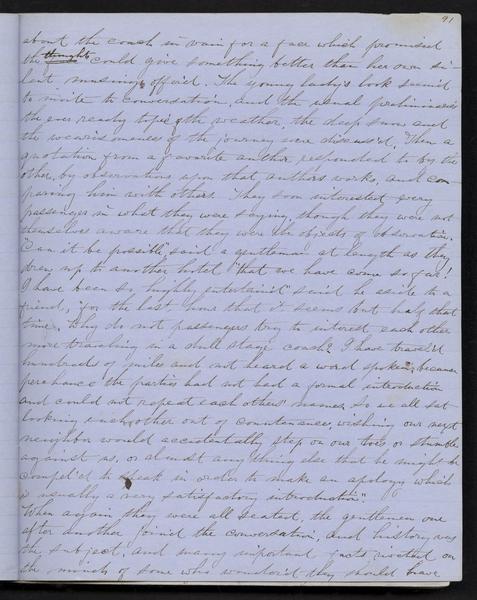 91
about the coach in vain for a face which promised
the thoughts could give something better than her own si-
lent musings offer'd. The young lady's look seem'd
to invite to conversation, and the usual preliminaries
the ever ready topic of the weather, the deep snow and
the wearisomeness of the journey were discuss'd. Then a
quotation from a favorite author, responded to by the
other, by observations upon that author's works, and com-
paring him with others. They soon interested every
passenger in what they were saying, though they were not
themselves aware that they were the objects of observation.
"Can it be possible," said a gentleman at length as they
drew up to another hotel "that we have come so far!
I have been so highly entertain'd" said he aside to a
friend, "for the last hour that it seems but half that
time. Why do not passengers try to interest each other
more traveling in a dull stage coach? I have travel'd
hundreds of miles and not heard a word spoken, because
perchance the parties had not had a formal introduction
and could not repeat each others' names, so we all sat
looking each other out of countenance, wishing our next
neighbor would accidentally step on our toes or stumble
against us, or almost any thing else that he might be
compel'd to speak in order to make an apology which
is usually a very satisfactory introduction."
When again they were all seated, the gentlemen one
after another join'd the conversation, and history was
the subject, and many important facts rivited on
the minds of some who wonder'd they should have